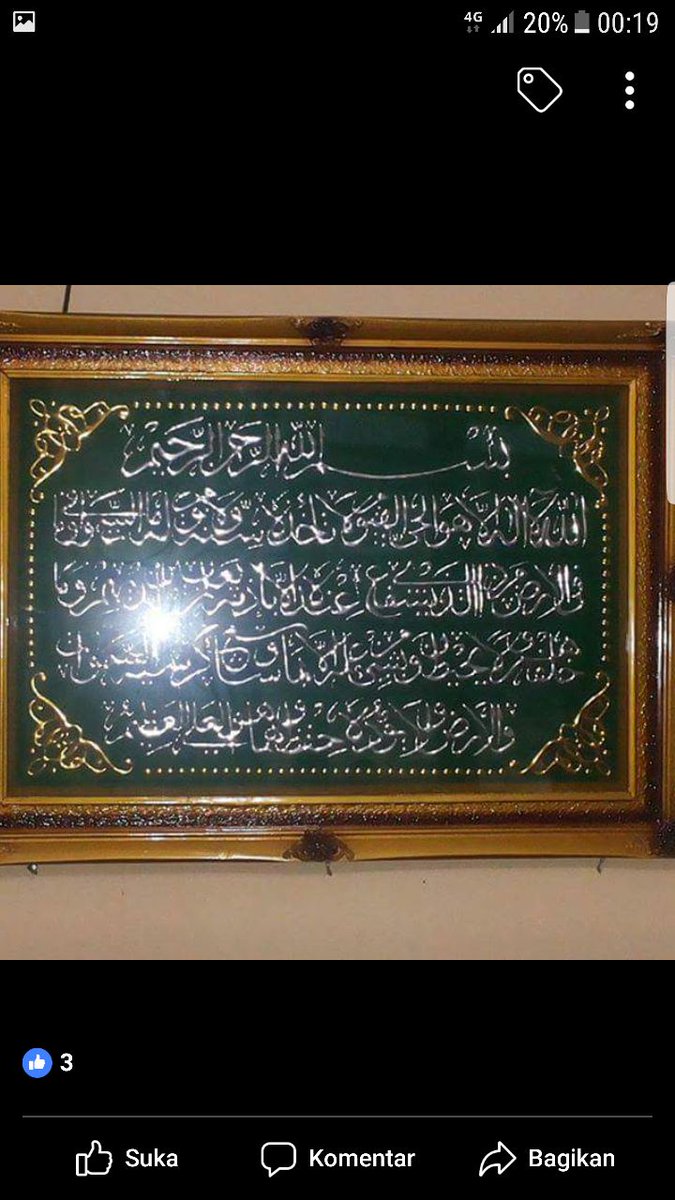 4G 20% 00:19
بسم الله الرحمن الرحيم
الله لا اله الا هو الحي القيوم لا تاخذه سنة ولا نوم له السموات وما
الارض من ذا الذي يشفع عنده الا باذنه يعلم وما
خلفهم ولا يحيطون بشيء من علمه الا بما شاء وسع كرسيه السموات
والارض ولا يؤده حفظهما وهو العلي العظيم
3
Suka Komentar Bagikan